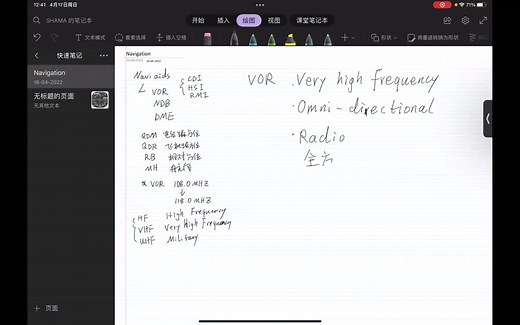 12:41 4月17日周日
71%
SHAMA 的笔记本
开始
插入
绘图
视图
课堂笔记本
快速笔记
文本模式
套索选择
插入空格
形状
将墨迹转换为形状
Navigation
16-04-2022
无标题的页面
无其他文本
Navigation
Navi aids
CDI
VOR HSI
RMI
NDB
DME
QDM
QDR
RB 相对方位
MH
VOR 108.0 MHZ
118.0 MHZ
HF High Frequency
VHF Very High Frequency
UHF Military
VOR · Very high frequency
· Omni-directional
· Radio
全方
+ 页面